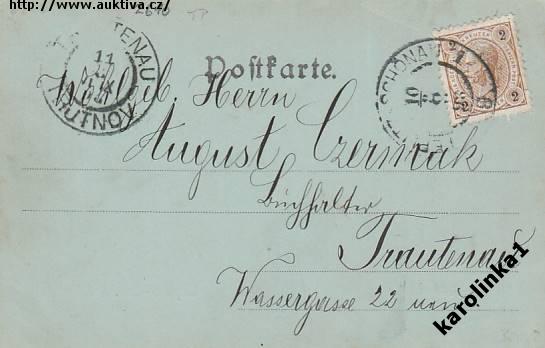 http://www.auktiva.cz/
2640
TRAUTENAU
TRUTNOV
Postkarte.
SCHÖNAU
2
2
2
Wohlgeb. Herrn
August Czermak
Buchhalter
Trautenau
Wassergasse 22 neu
karolinka1